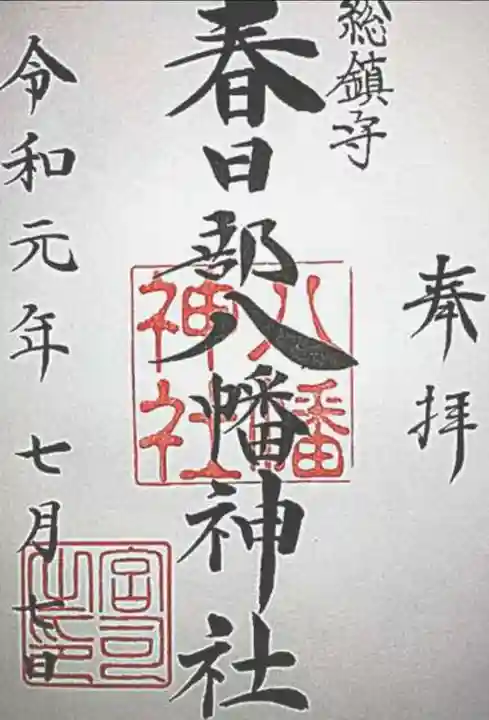 総鎮守
奉拝
春日部八幡神社
八幡
神社
宮司
之印
令和元年七月七日